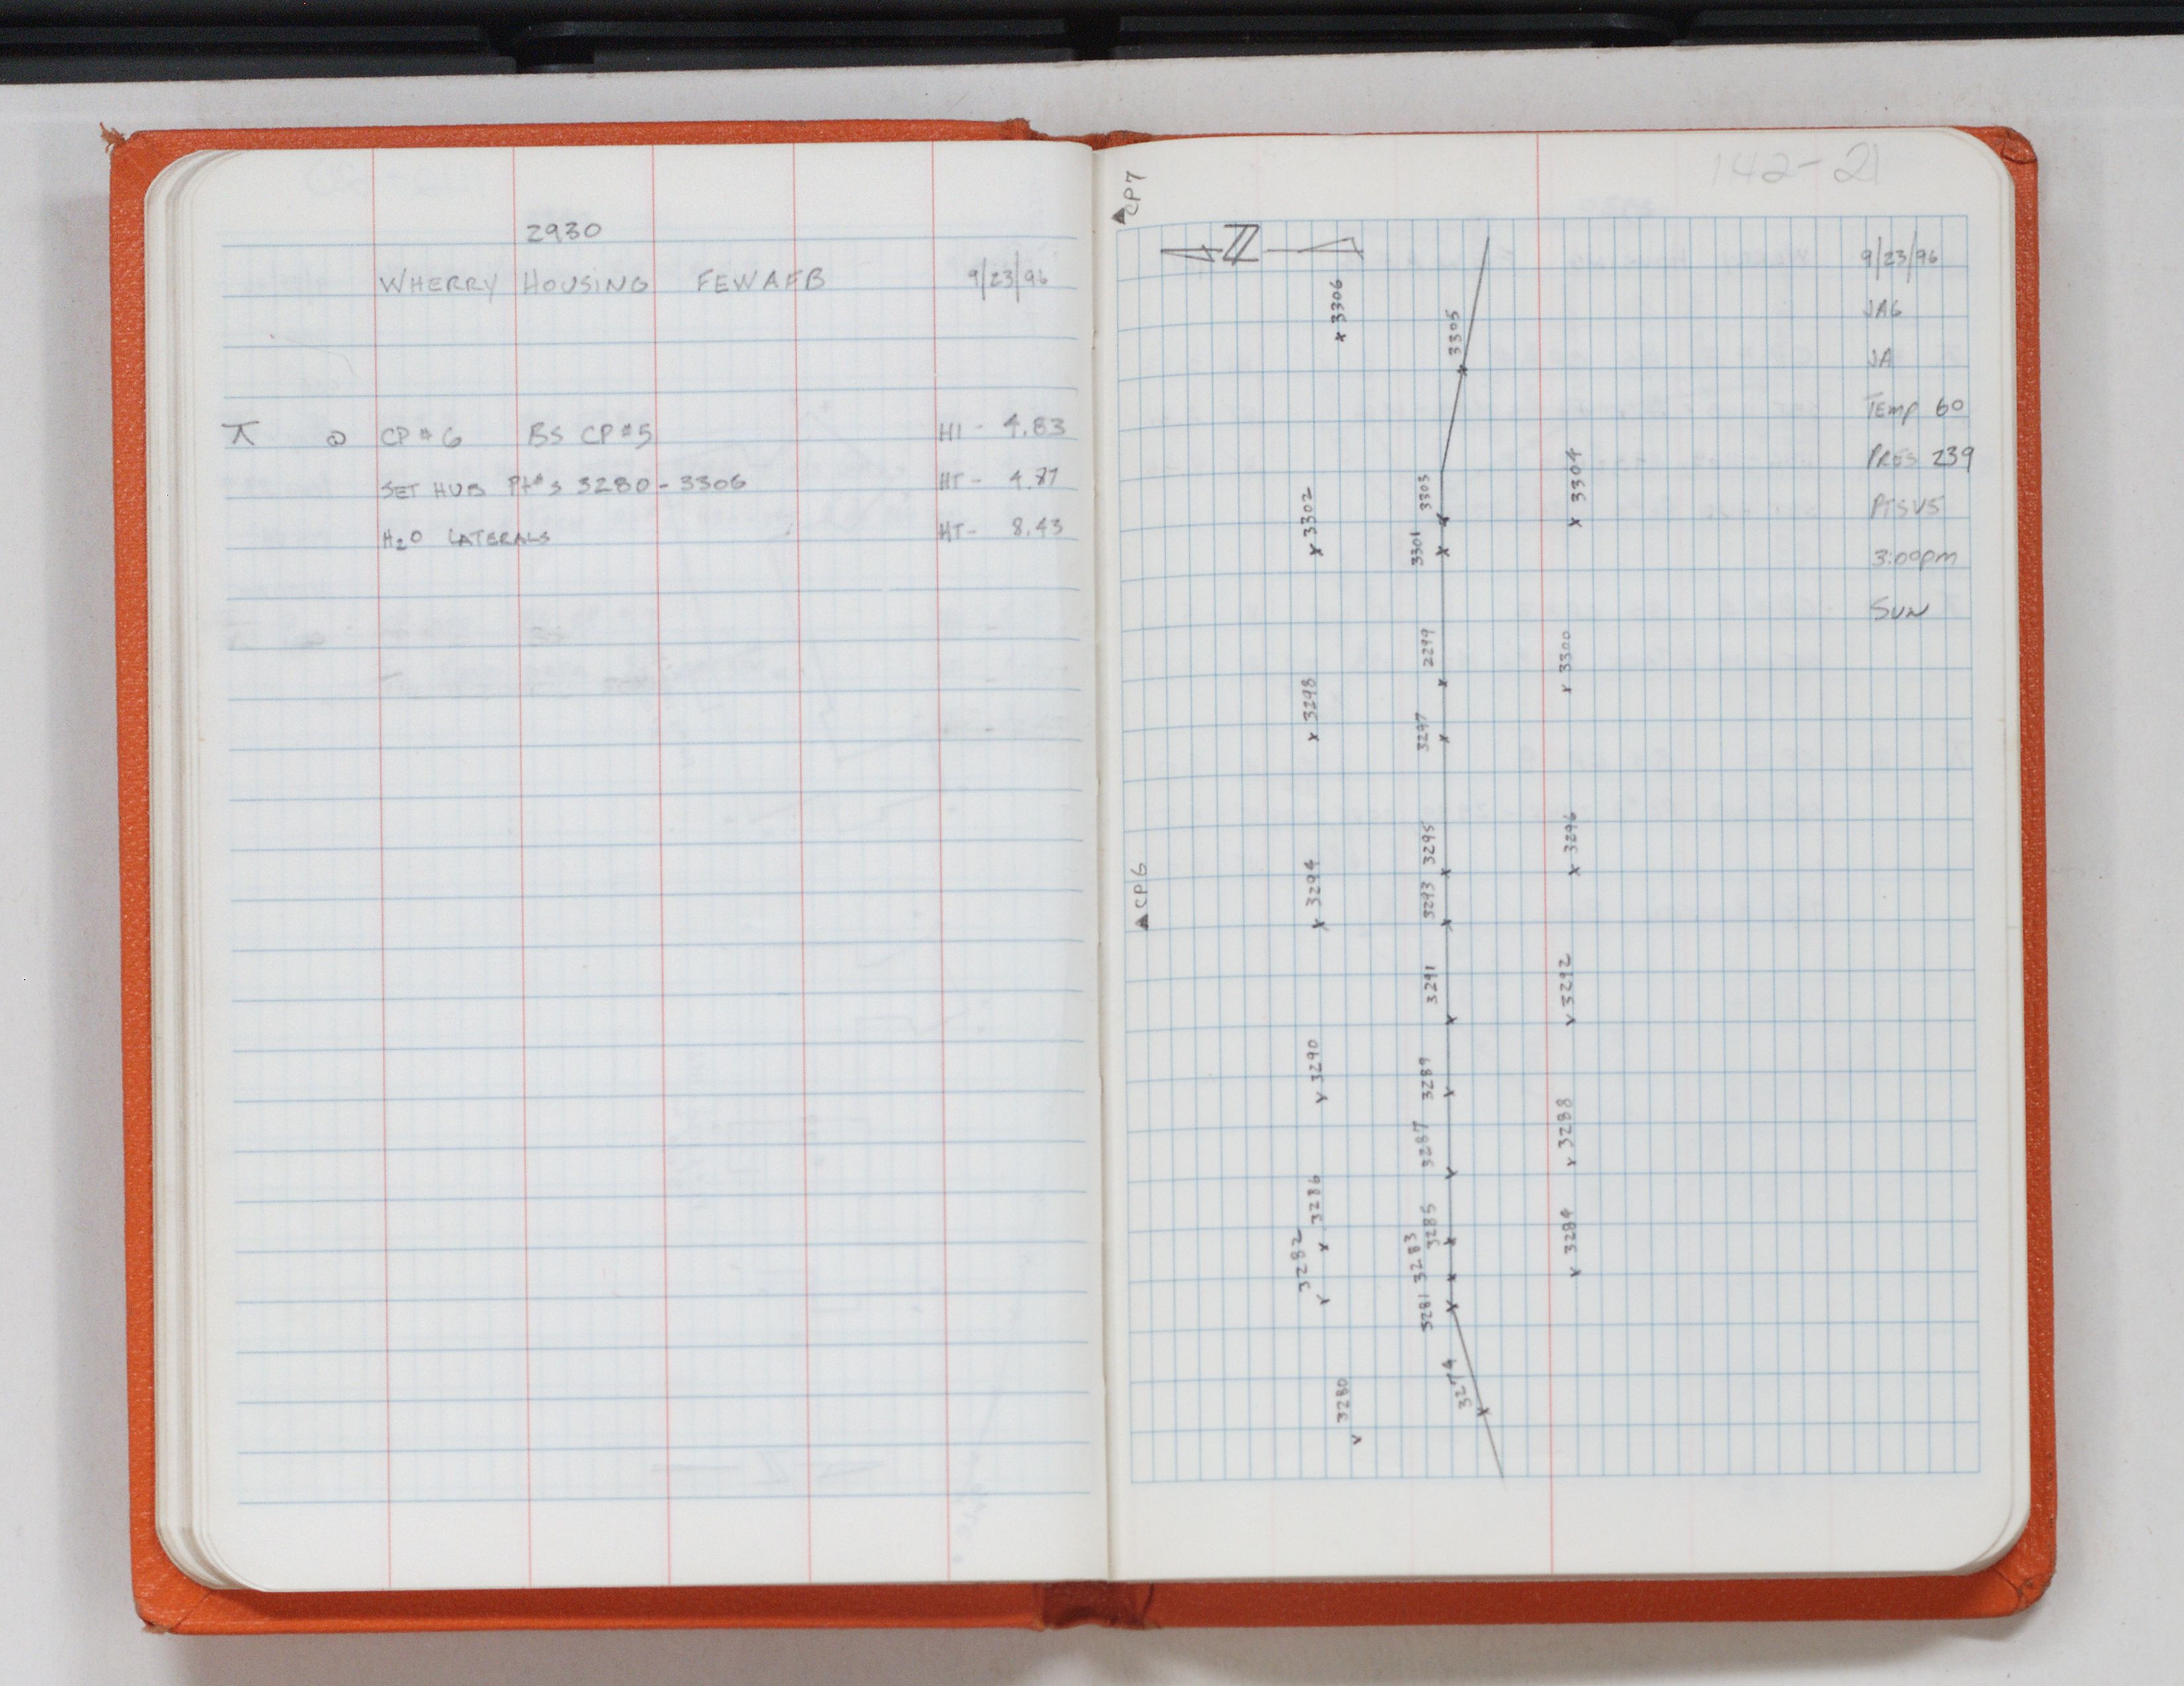 2930
WHERRY HOUSING FEWAFB 9/23/96
⊼ @ CP#6 BS CP#5 HI - 4.83
SET HUB Pt#'s 3280 - 3306 HT - 4.87
H2O LATERALS HT - 8.43
142-21
CP7
N
9/23/96
JAG
JA
Temp 60
PRES 239
PTSV5
3:00pm
SUN
x 3306
3305
3304
3303
x 3302
3301
x 3300
2299
x 3298
3297
x 3296
3295
x 3294
3293
CP6
3292
3291
3290
3289
3288
3287
3286
3285
3284
3283
3282
3281
3280
3279